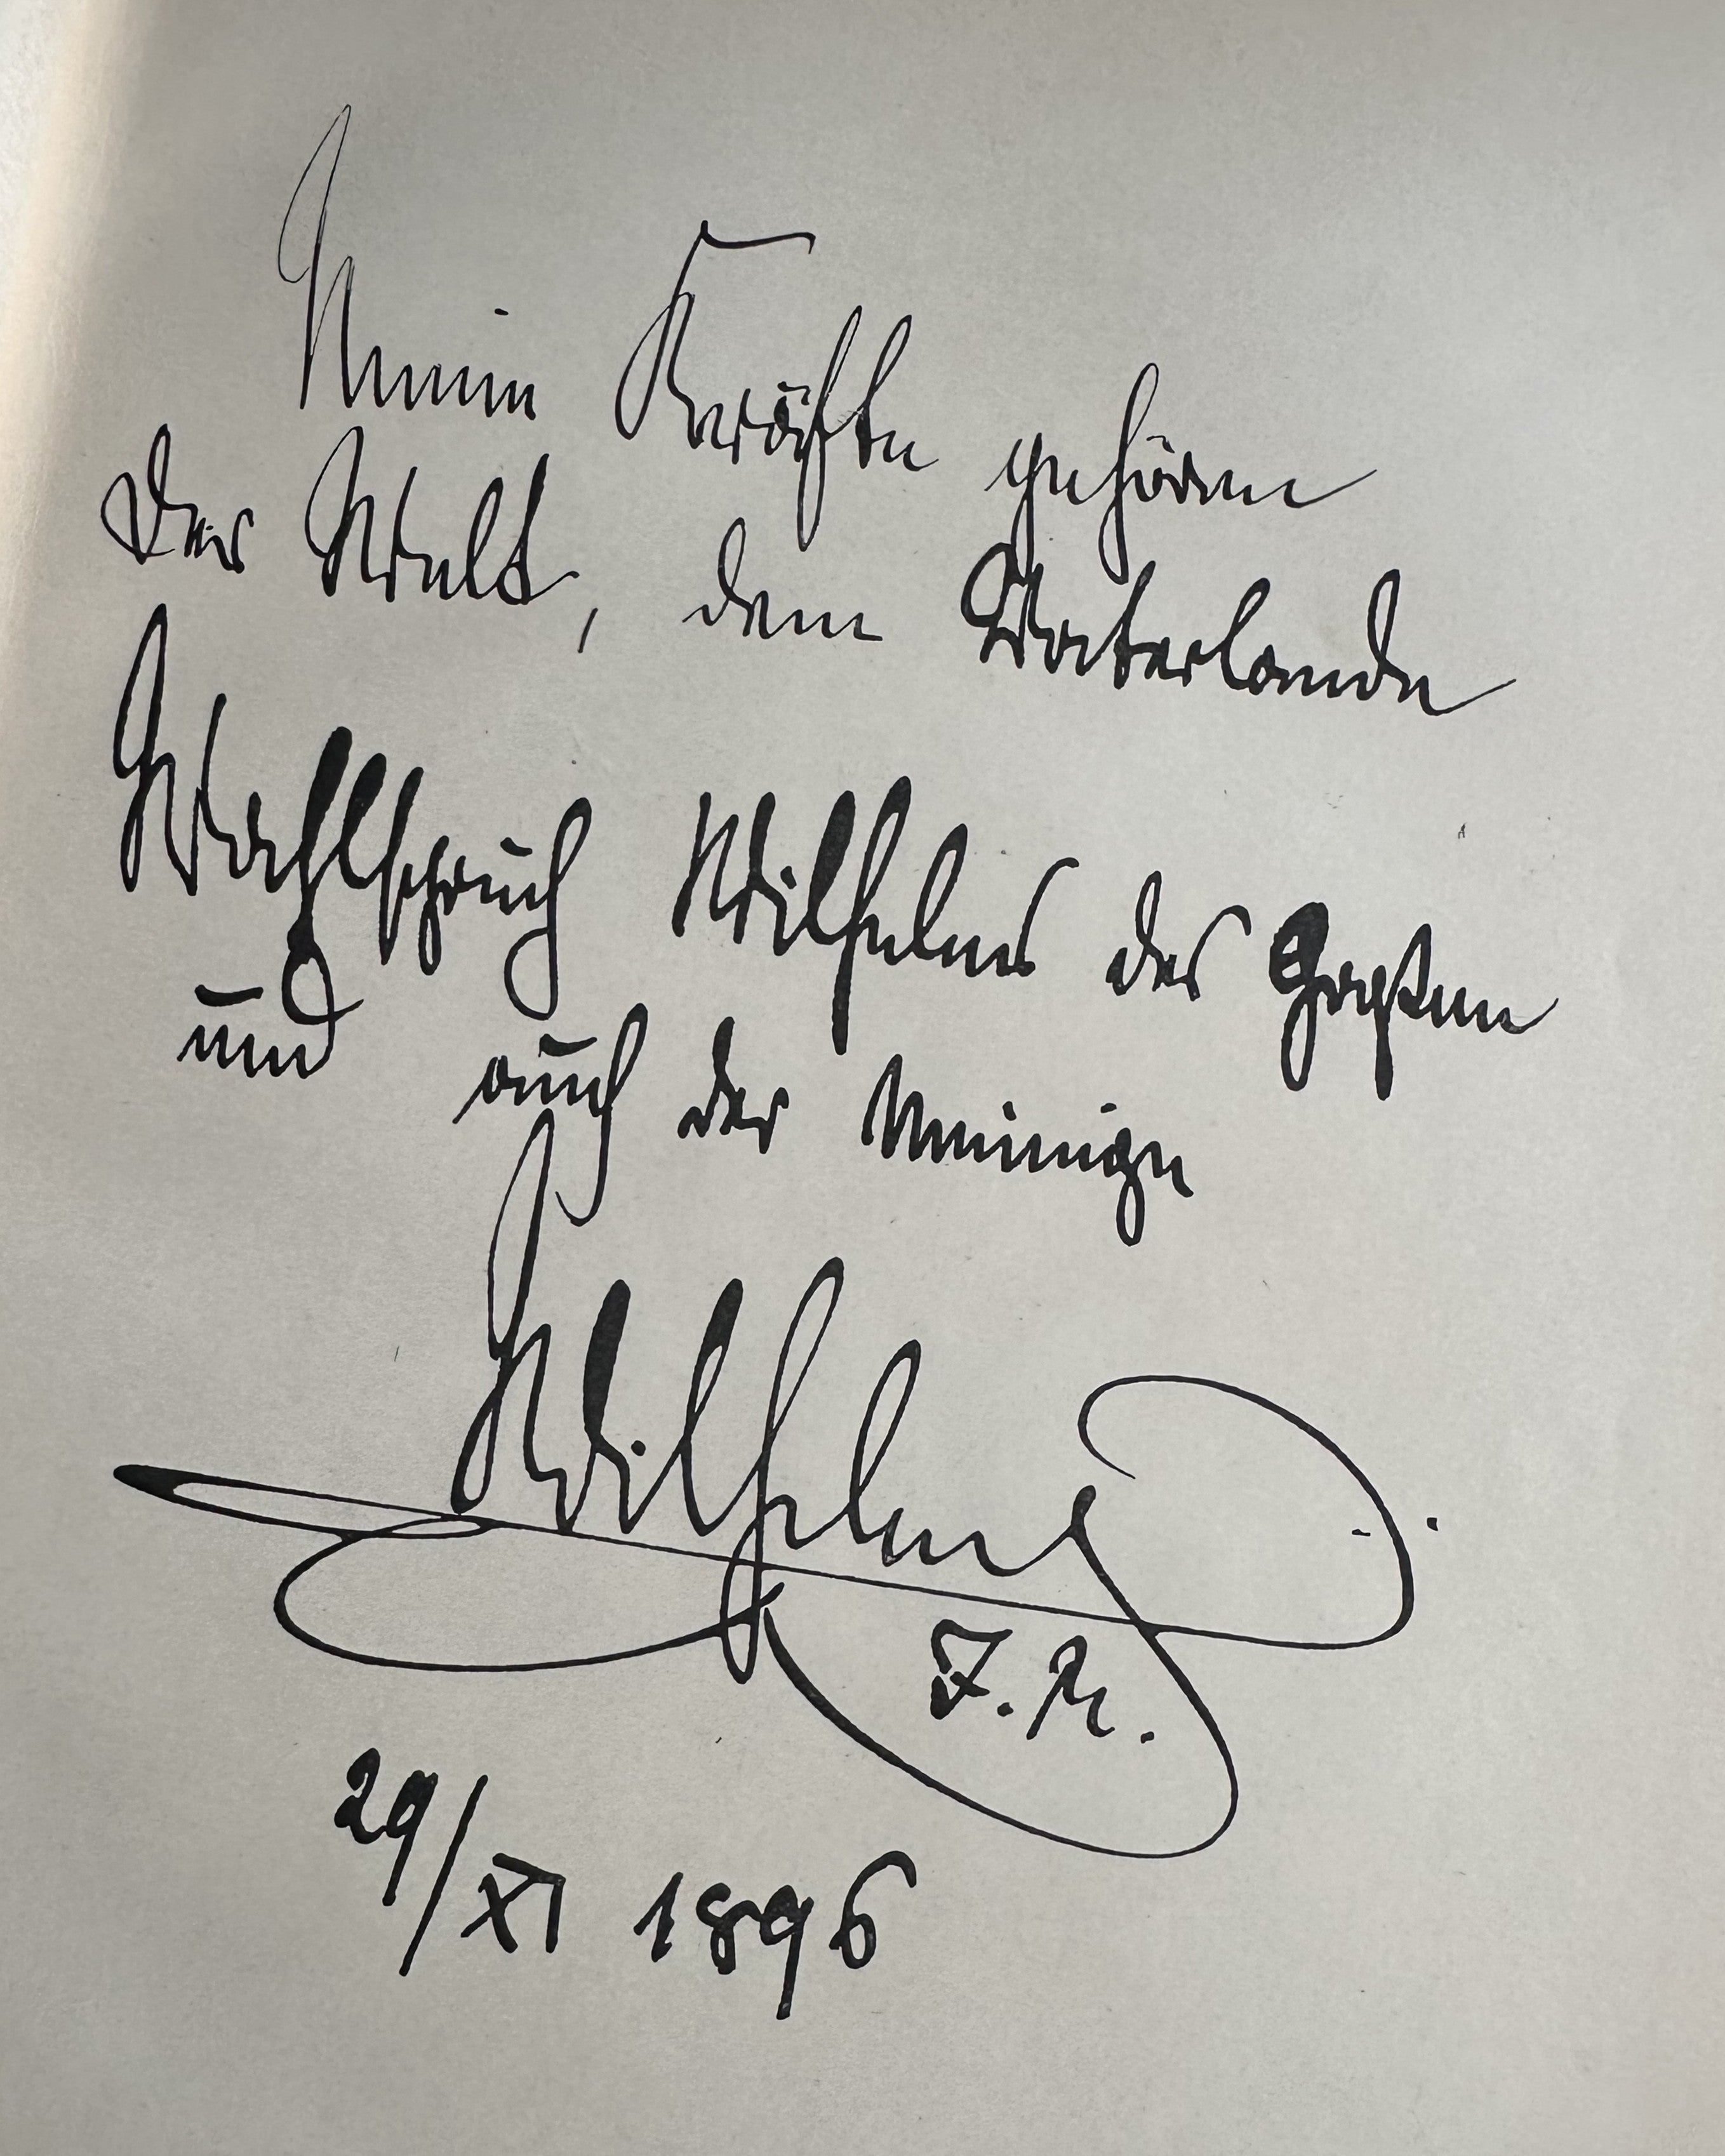 Meine Kräfte gehören
der Welt, dem Vaterlande
Wahlspruch Wilhelms des Großen
und auch der Meinige
Wilhelm
I. R.
29/XI 1896